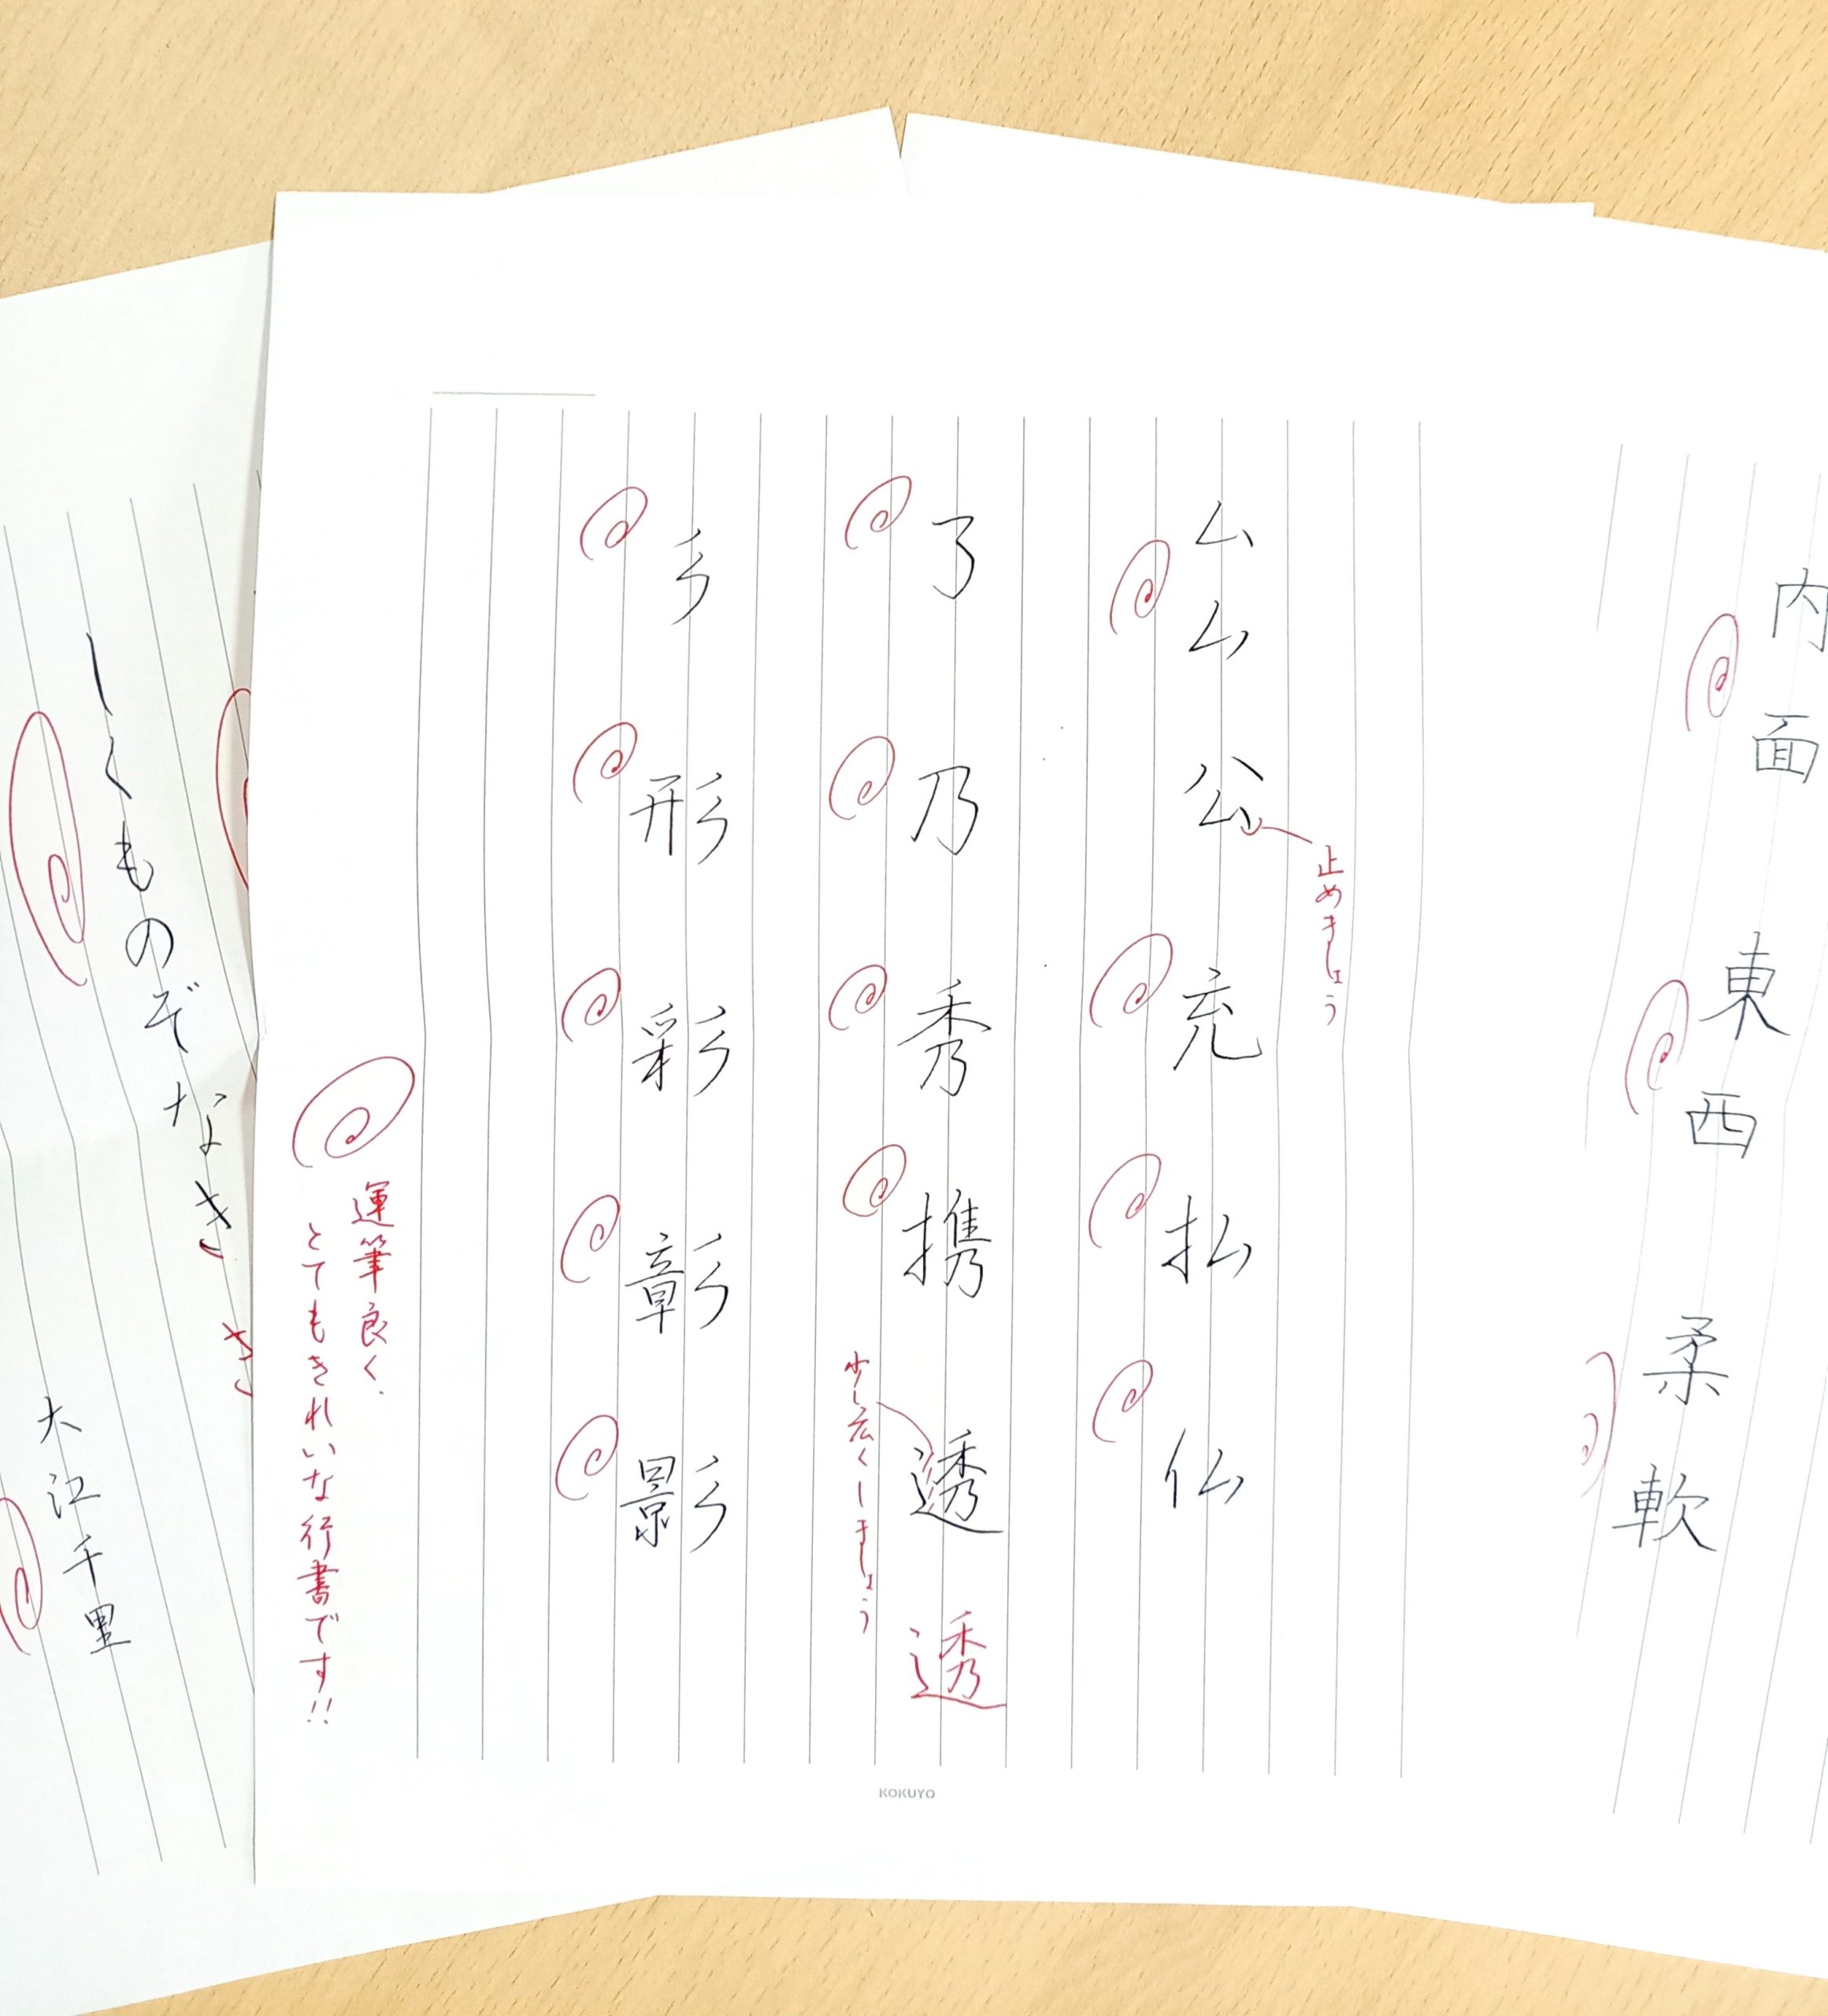 内面 東西 柔軟
ム ム 公 充 払 仏
止めましょう
了 乃 秀 携 透
透
少し広くしましょう
彡 形 彩 彰 影
運筆良く、
とてもきれいな行書です!!
KOKUYO
しくものぞなき
き
大江千里